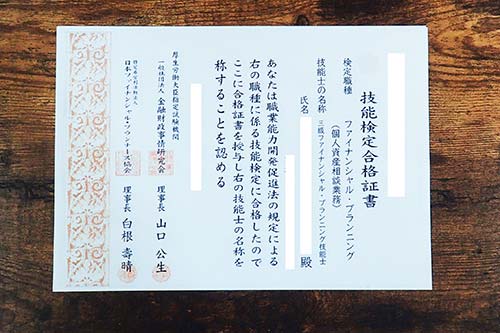 技能検定合格証書
検定職種
ファイナンシャル・プランニング
(個人資産相談業務)
技能士の名称
三級ファイナンシャル・プランニング技能士
氏名
殿
あなたは職業能力開発促進法の規定による
右の職種に係る技能検定に合格したので
ここに合格証書を授与し右の技能士の名称を
称することを認める
厚生労働大臣指定試験機関
一般社団法人 金融財政事情研究会
理事長 山口公生
特定非営利活動法人
日本ファイナンシャル・プランナーズ協会
理事長 白根壽晴